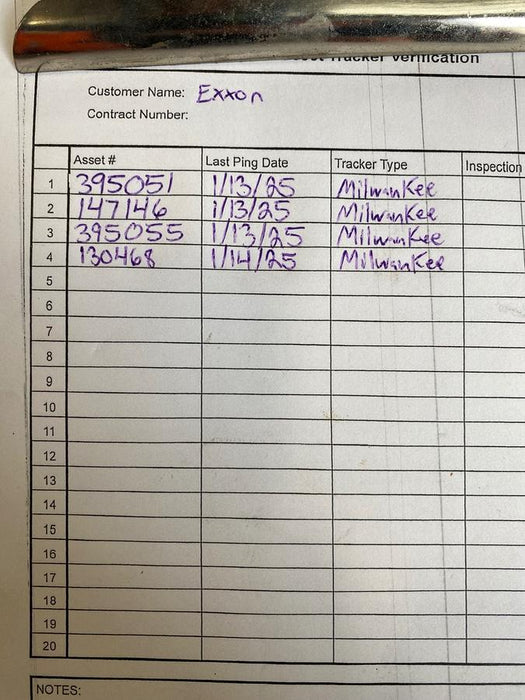 Tracker Verification
Customer Name: Exxon
Contract Number:
Asset # Last Ping Date Tracker Type Inspection
1 395051 1/13/25 Milwaukee
2 147146 1/13/25 Milwaukee
3 395055 1/13/25 Milwaukee
4 130468 1/14/25 Milwaukee
5
6
7
8
9
10
11
12
13
14
15
16
17
18
19
20
NOTES: